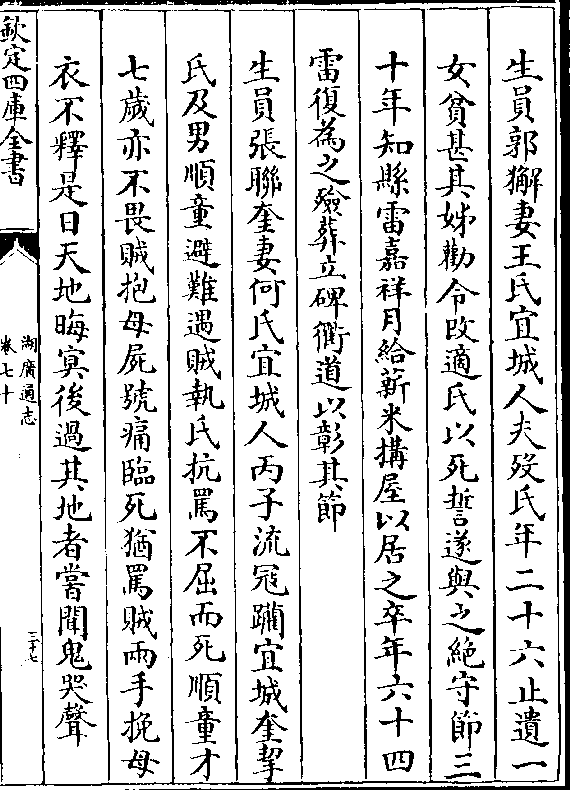 生員郭獬妻王氏宜城人夫歿氏年二十六止遺一
女貧甚其姊勸令改適氏以死誓遂與之絶守節三
十年知縣雷嘉祥月給薪米搆屋以居之卒年六十四
雷復為之殮葬立碑衢道以彰其節
生員張聯奎妻何氏宜城人丙子流冦躪宜城奎挈
氏及男順童避難遇賊執氏抗罵不屈而死順童才
七歲亦不畏賊抱母屍號痛臨死猶罵賊兩手挽母
衣不釋是日天地晦冥後過其地者嘗聞鬼哭聲
欽定四庫全書
湖廣通志
卷七十
三十七